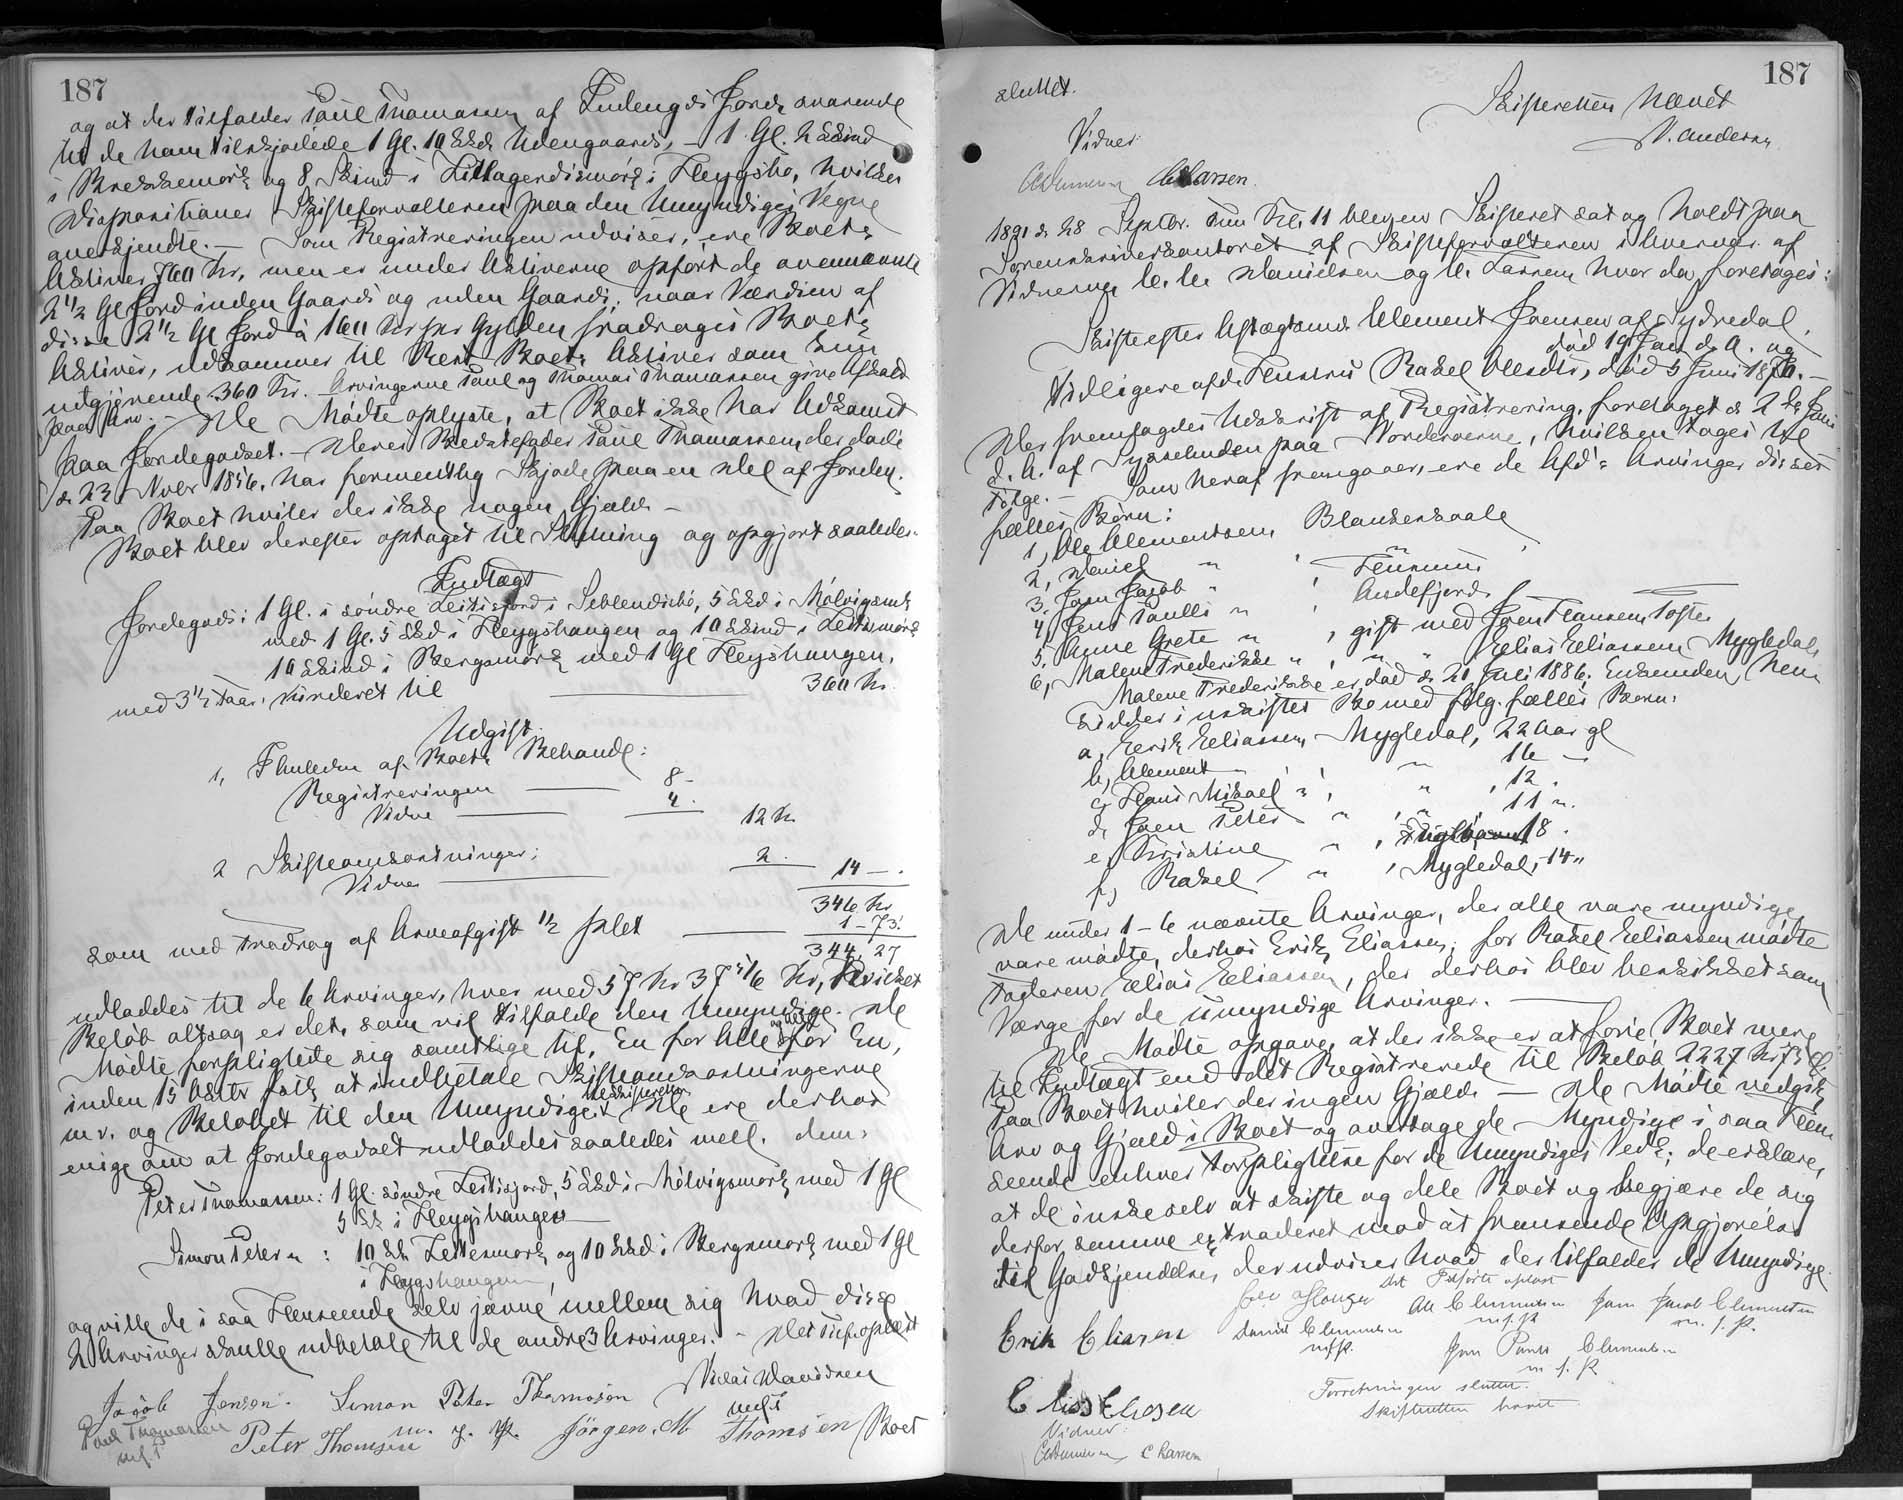 187
og at der tilfalder Poul Thomassen af Indengds Jord, svarende
til de ham tilskjødede 1 Gl. 10 Skd. Udengaards, – 1 Gl. 2 Skind
i Brekkemørk og 8 Skind i Fleygshø, hvilken
Dispositioner Skifteforvalteren paa den Umyndiges Vegne
anerkjendte. – Som Registreringen udviser, ere Boets
Aktiver men er under Aktiverne opført de ovennævnte
2 1/2 Gl Jord inden Gaards og uden Gaards; naar Værdien af
disse 2 1/2 Gl Jord à 160 Kr per Gylden fradrages Boets
Aktiver, udkommer til Rest Boets Aktiver som kun
udgjørende 360 Kr. Arvingerne Poul og Thomas Thomassen give Afkald
paa Arv. – De Mødte oplyste, at Boet ikke har Adkomst
paa Jordegodset. – Deres Bedstefader Poul Thomassen, der døde
d. 23 Novbr 1856, har formentlig Skjøde paa en Del af Jorden.
Paa Boet hviler der ikke nogen Gjæld. –
Boet blev derefter optaget til Slutning og opgjort saaledes.
Indtægt
Jordegods: 1 Gl. i søndre Leitisjord i 5 Skd i Mølvigsmørk
med 1 Gl. 5 Skd i Fleygshangen og 10 Skind i
10 Skind i Bergsmørk med 1 Gl Fleyshangen,
med 3 1/2 Faar, vurderet til 360 Kr.
Udgift.
1, Ihuleden af Boets Behandl:
Registreringen 8 –
Vidne 4. 12 Kr.
2 Skifteomkostninger;
Vidne 2. 14 – .
346 Kr
som med Fradrag af Arveafgift 1/2 pCt 1 – 73.
344, 27
udlagdes til de 6 Arvinger, hver med 57 Kr 37 5/6 Kr, hvilket
Beløb altsaa er det, som vil tilfalde den Umyndige. De
Mødte forpligtede sig samtlige til, En for Alle og Alle for En,
inden 15 Oktbr førstk at indbetale Skifteomkostningerne
m.v. og Beløbet til den Umyndige til Skifteretten. De ere derhos
enige om at Jordegodset udlagdes saaledes mell. dem:
Peter Thomassen: 1 Gl. søndre Leitisjord, 5 Skd i Mølvigsmørk med 1 Gl
5 Sk i Fleygshangen
Simon Peter " : 10 Sk. og 10 Skd i Bergsmørk med 1 Gl
i Fleygshangen,
og ville de i saa Henseende selv jævne mellem sig hvad disse
2 Arvinger skulle udbetale til de andre 3 Arvinger. – Det Tilf. oplæst
Jacob Jensen. Simon Peter Thomsen
Poul Thomassen Peter Thomsen m. f. P. Jørgen. M. Thomsen Boet
m.f.P
187
sluttet.
Skifteretten Hævet
N. Andersen
Vidner:
C Larsen.
1891 d. 28 Septbr. Em Kl. 11 blev en Skifteret sat og holdt paa
Sorenskriverkontoret af Skifteforvalteren i Overvær af
Vidnerne Danielsen og C. Larsen, hvor da foretoges:
Skifte efter Aftægtsmd. Clement Joensen af Sydredal,
død 19 Jan d. A. og
tidligere afd. Hustru Rakel død 5 Juni 18
Der fremlagdes Udskrift af Registrering, foretaget d. 2 Juni
d. A. af Sysselmden paa Norderøerne, hvilken tages til
Følge. – Som heraf fremgaaer, ere de Afd's Arvinger disses
fælles Børn:
1, Ole Clementsen, Blankenskaale
2, Daniel " , "
3, Joen Jacob " ,
4, Jens Poulli " , Andefjord
5, Anne Grete " , gift med Joen Hansen, Toftir
6, Malene Frederikke " , " " Elias Eliassen, Mygledal,
Malene Frederikke er død d. 21 Juli 1886. Enkemanden hen
sidder i uskiftet Bo med følg. fælles Børn:
a, Erik Eliassen, Mygledal, 22 Aar gl
b, Clement " , " 16 –
c, Hans Mikael " , " , 12 .
d, Joen Peter " , " , 11 ".
e, Kristine " , 18 .
f, Rakel " , Mygledal, 14 "
De under 1–6 nævnte Arvinger, der alle vare myndige,
vare mødte, derhos Erik Eliassen; for Rakel Eliassen mødte
Faderen Elias Eliassen, der derhos blev beskikket som
Værge for de umyndige Arvinger.
De Mødte opgave, at der ikke er at føre Boet mere
til Indtægt end det Registrerede til Beløb 2227 Kr 75
Paa Boet hviler der ingen Gjæld. – De Mødte vedgik
Arv og Gjæld i Boet og overtage de Myndige i saa Hen-
seende enhver Forpligtelse for de Umyndiges Vedk; de erklære,
at de ønske selv at skifte og dele Boet og begjære de sig
derfor samme extraderet mod at fremsende Opgjørelse
til Godkjendelse, der udviser hvad der tilfalder de Umyndige.
Det Tilførte oplæst
Joen Hansen Ole Clementsen Joen Jacob Clementsen
m. f. P. m. f. P.
Erik Eliasen Daniel Clementsen
m.f.P. Jens Pauli Clementsen
m. f. P
Elias Eliasen Forretningen sluttet.
Skifteretten hævet
Vidner:
C Larsen